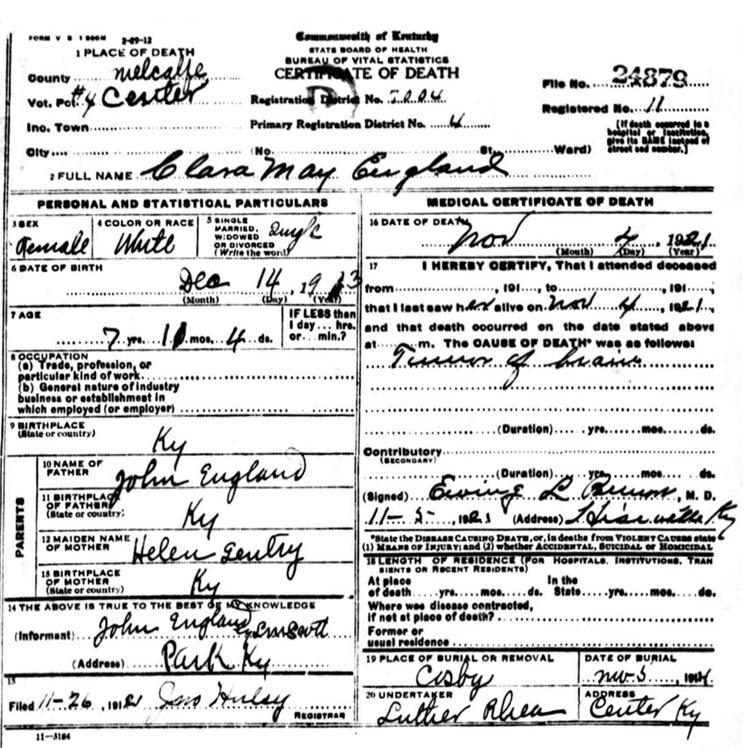 FORM V S 1 500M 2-29-12
Commonwealth of Kentucky
STATE BOARD OF HEALTH
BUREAU OF VITAL STATISTICS
CERTIFICATE OF DEATH
1 PLACE OF DEATH
County Metcalfe
Vot. Pct #4 Center
Inc. Town
City (No. St., Ward)
Registration District No. 7004
Primary Registration District No. 4
File No. 24879
Registered No. 11
[If death occurred in a hospital or institution, give its NAME instead of street and number.]
2 FULL NAME Clara May England
PERSONAL AND STATISTICAL PARTICULARS
3 SEX Female
4 COLOR OR RACE White
5 SINGLE MARRIED, WIDOWED OR DIVORCED (Write the word) Single
6 DATE OF BIRTH Dec 14, 1913
(Month) (Day) (Year)
7 AGE 7 yrs. 11 mos. 4 ds.
IF LESS than 1 day... hrs. or... min.?
8 OCCUPATION
(a) Trade, profession, or particular kind of work
(b) General nature of industry business or establishment in which employed (or employer)
9 BIRTHPLACE (State or country) Ky
PARENTS
10 NAME OF FATHER John England
11 BIRTHPLACE OF FATHER (State or country) Ky
12 MAIDEN NAME OF MOTHER Helen Gentry
13 BIRTHPLACE OF MOTHER (State or country) Ky
14 THE ABOVE IS TRUE TO THE BEST OF MY KNOWLEDGE
(Informant) John England
(Address) Park Ky
15
Filed 11-26, 1921 Jno Hulsy
REGISTRAR
11-3184
MEDICAL CERTIFICATE OF DEATH
16 DATE OF DEATH Nov 4, 1921
(Month) (Day) (Year)
17 I HEREBY CERTIFY, That I attended deceased
from, 191, to, 191,
that I last saw her alive on Nov 4, 1921,
and that death occurred on the date stated above
at m. The CAUSE OF DEATH* was as follows:
Tumor of brain
(Duration) yrs. mos. ds.
Contributory (SECONDARY)
(Duration) yrs. mos. ds.
(Signed) Ewing L, M. D.
11-5 1921 (Address) Ky
*State the DISEASE CAUSING DEATH, or, in deaths from VIOLENT CAUSES state
(1) MEANS OF INJURY; and (2) whether ACCIDENTAL, SUICIDAL OR HOMICIDAL
18 LENGTH OF RESIDENCE (FOR HOSPITALS, INSTITUTIONS, TRAN
SIENTS OR RECENT RESIDENTS)
At place of death yrs. mos. ds. In the State yrs. mos. ds.
Where was disease contracted,
if not at place of death?
Former or
usual residence
19 PLACE OF BURIAL OR REMOVAL Cosby
DATE OF BURIAL Nov 5, 1921
20 UNDERTAKER Luther Rhea
ADDRESS Center Ky